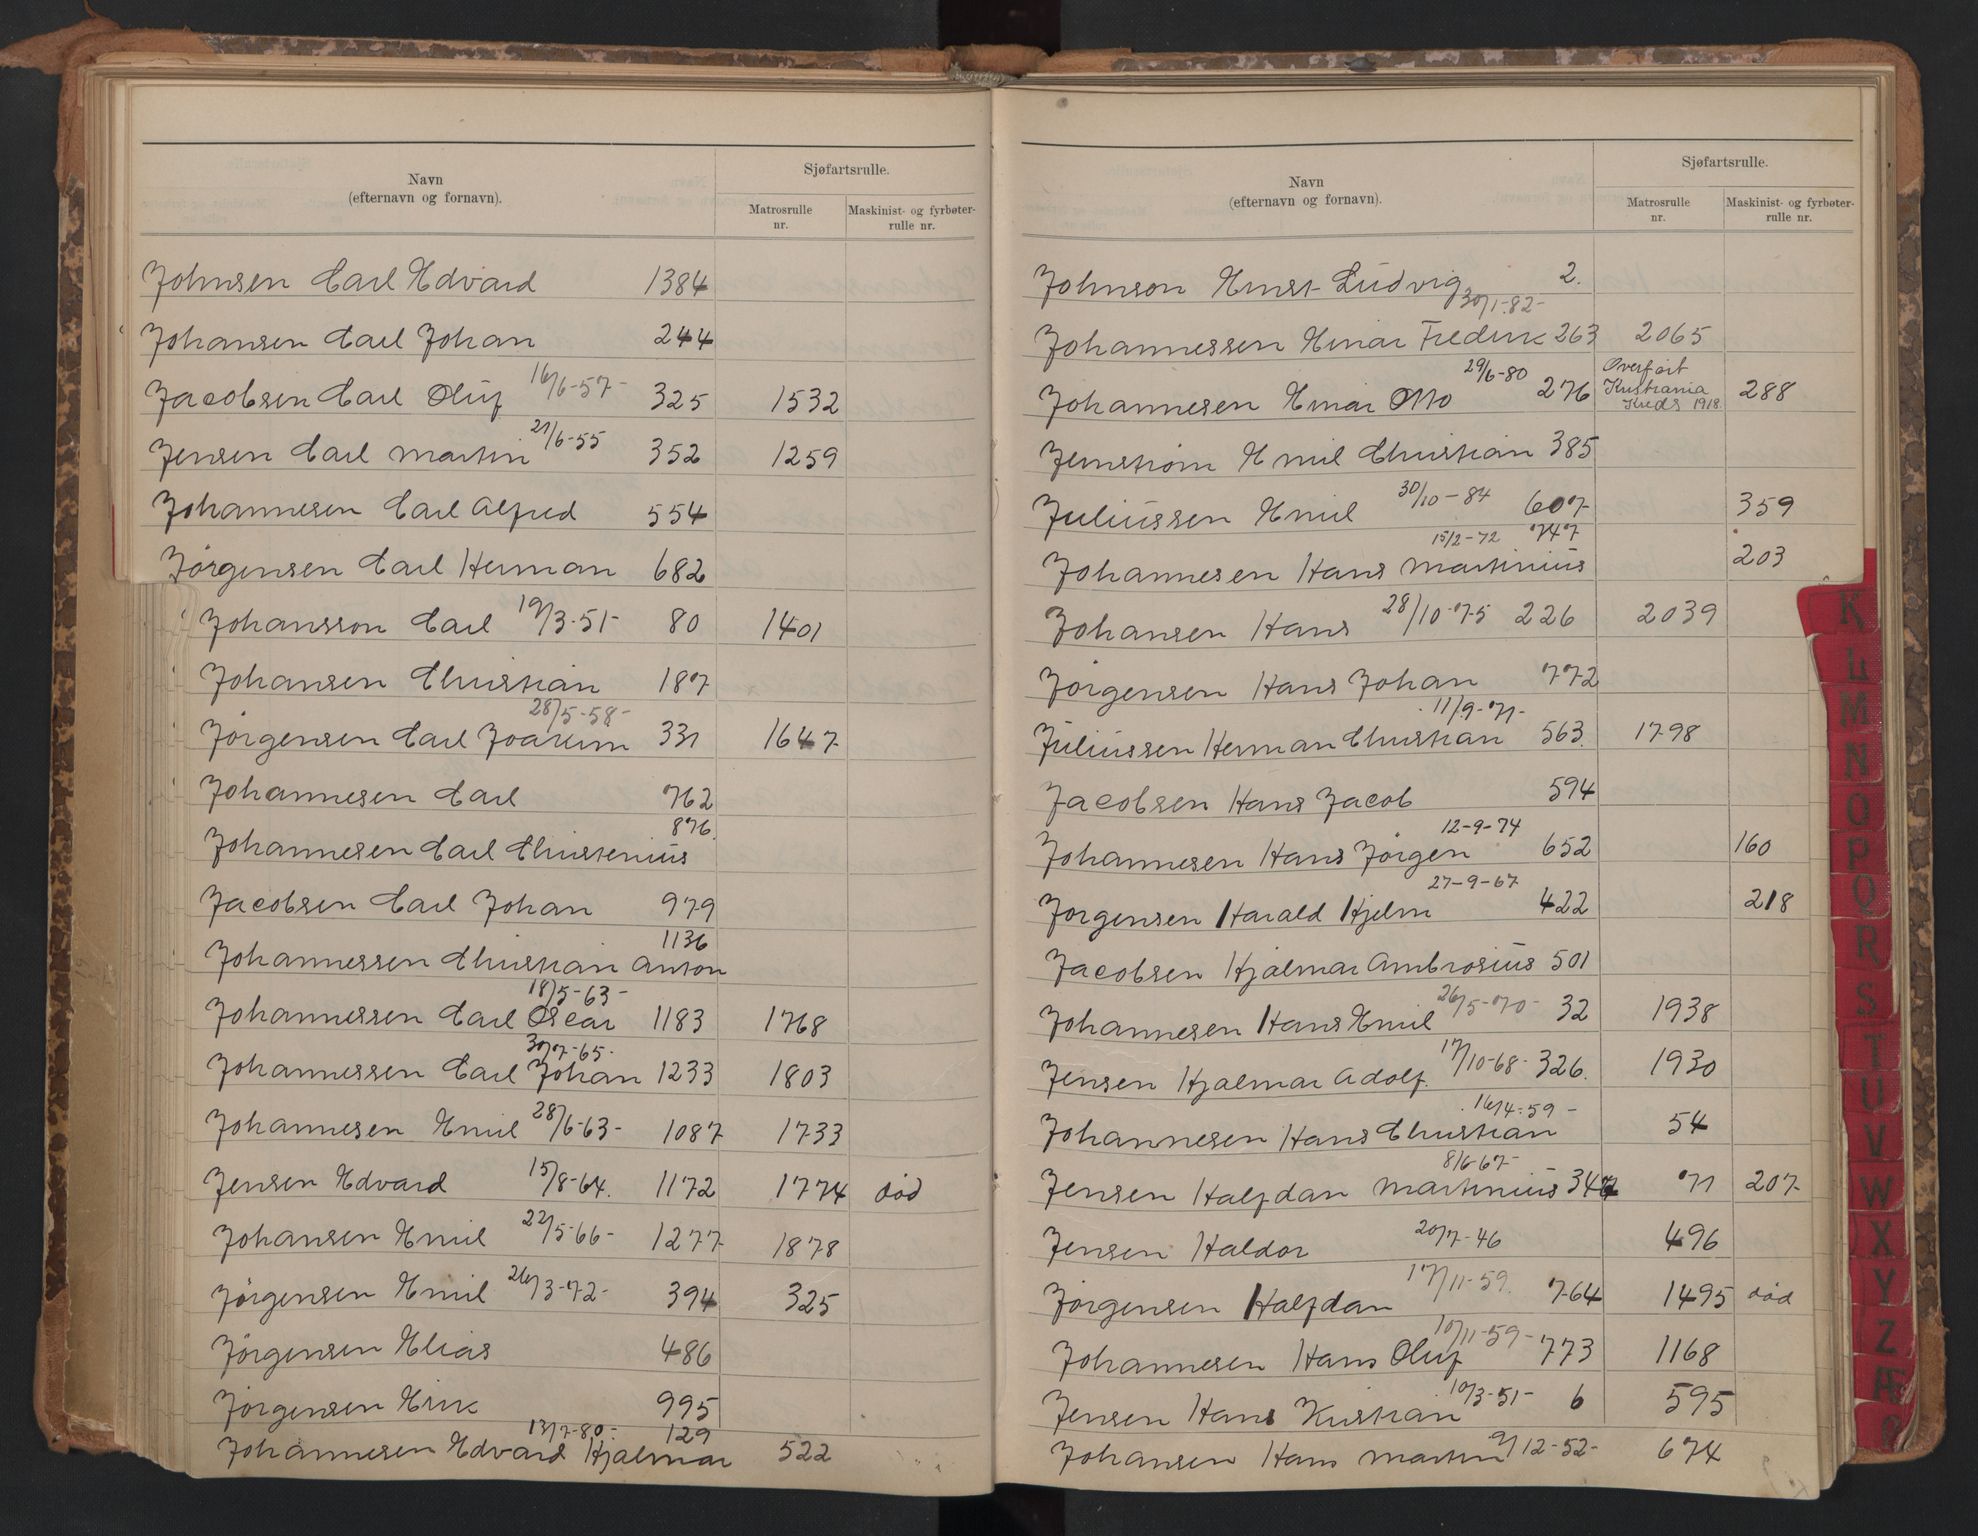 Navn
(efternavn og fornavn).
Sjøfartsrulle.
Matrosrulle
nr.
Maskinist- og fyrbøter-
rulle nr.
Johnsen Carl Edvard 1384
Johansen Carl Johan 244
Jacobsen Carl Oluf 16/6-57- 325 1532
Jensen Carl Martin 21/6-55 352 1259
Johannesen Carl Alfred 554
Jørgensen Carl Herman 682
Johansson Carl 19/3-51- 80 1401
Johansen Christian 187
28/5-58-
Jørgensen Carl Joakim 331 1647
Johannesen Carl 762
876.
Johannesen Carl Christenius
Jacobsen Carl Johan 979
1136
Johannessen Christian Anton
18/5-63-
Johannessen Carl Oscar 1183 1768
30/7-65-
Johannessen Carl Johan 1233 1803
Johannesen Emil 28/6-63- 1087 1733
Jensen Edvard 15/8-64. 1172 1774 død
Johansen Emil 22/5-66- 1277 1878
Jørgensen Emil 26/3-72- 394 325
Jørgensen Elias 486
Jørgensen Erik 995
13/7-80- 129
Johannesen Edvard Hjalmar 522
Navn
(efternavn og fornavn).
Sjøfartsrulle.
Matrosrulle
nr.
Maskinist- og fyrbøter-
rulle nr.
Johnson Ernst Ludvig 2.
30/1.82-
Johannessen Einar Fredrik 263 2065
29/6-80 Overført
Johannesen Einar Otto 276 Kristiania 288
Kreds 1918.
Jernstrøm Emil Christian 385
Juliussen Emil 30/10-84 607 359
15/2-72 747
Johannesen Hans Martinius 203
Johansen Hans 28/10-75 226 2039
Jørgensen Hans Johan 772
11/9-71-
Juliussen Herman Christian 563. 1798
Jacobsen Hans Jacob 594
12-9-74
Johannesen Hans Jørgen 652 160
27-9-67
Jørgensen Harald Hjelm 422 218
Jacobsen Hjalmar Ambrosius 501
Johannesen Hans Emil 26/5-70- 32 1938
Jensen Hjalmar Adolf. 17/10-68- 326. 1930
16/4-59-
Johannesen Hans Christian 54
8/6-67-
Jensen Halfdan Martinius 347 71 207
Jensen Haldor 20/7-46 496
Jørgensen Halfdan 17/11-59. 764 1495 død
Johannesen Hans Oluf 10/11-59- 773 1168
Jensen Hans Kristian 10/3-51- 6 595
Johansen Hans Martin 9/12-52- 674
K
L
M
N
O
P
Q
R
S
T
U
V
W
X
Y
Z
Æ
Ø